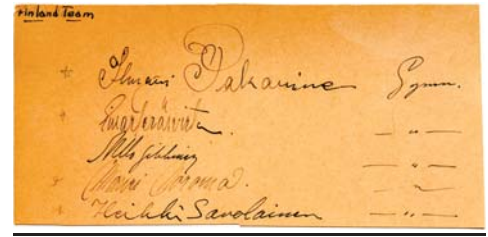 Finland Team
Ilmari Pakarinen Gymn.
Einar Teräsvirta. — " —
— " —
Mauri Noroma. — " —
Heikki Savolainen — " —